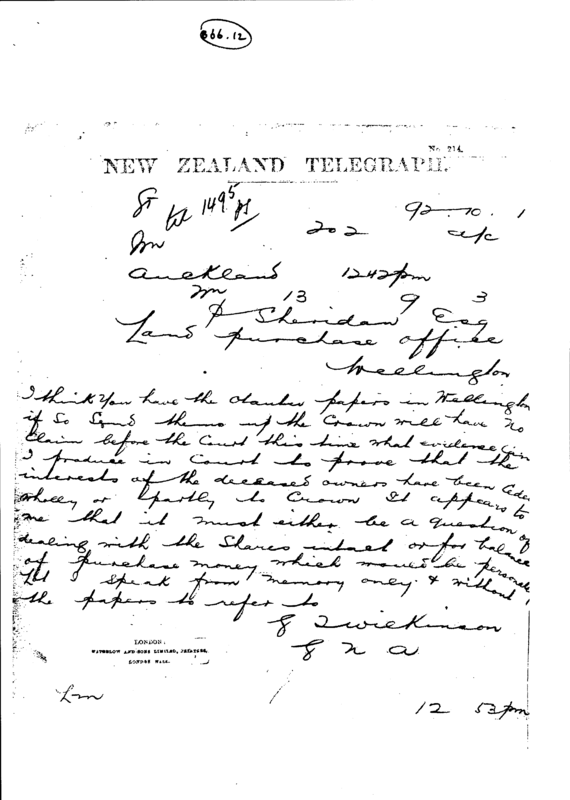 366.12
No. 214.
NEW ZEALAND TELEGRAPH.
92-10. 1
202 a/c
Auckland 1242pm
13 9 3
P Sheridan Esq
Land purchase office
Wellington
I think you have the papers in Wellington
if So Send them up the Crown will have no
Claim before the Court this time what evidence can
I produce in Court to prove that the
interests of the deceased owners have been
wholly or partly to Crown It appears to
me that it must either be a question of
dealing with the Shares intact or for balance
of purchase money which would be
but I Speak from memory only & without
the papers to refer to
G T Wilkinson
G N A
LONDON:
WATERLOW AND SONS LIMITED, PRINTERS,
LONDON WALL.
12 53pm